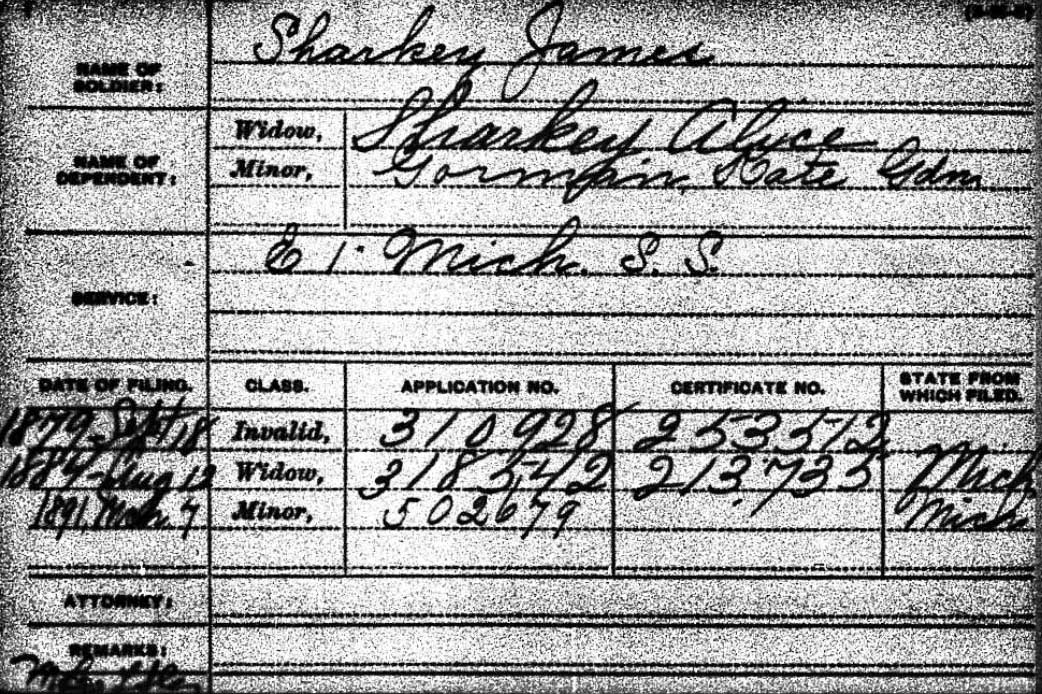 Sharkey James
NAME OF
SOLDIER:
Widow, Sharkey Alyce
NAME OF
DEPENDENT:
Minor, Gorman, Kate Gdn.
E 1 Mich. S. S.
SERVICE:
DATE OF FILING. CLASS. APPLICATION NO. CERTIFICATE NO. STATE FROM
WHICH FILED.
1879 Sept 18 Invalid, 310928 253572
1884 Aug 12 Widow, 318542 213735 Mich
1891 Mch 7 Minor, 502679 Mich
ATTORNEY:
REMARKS: